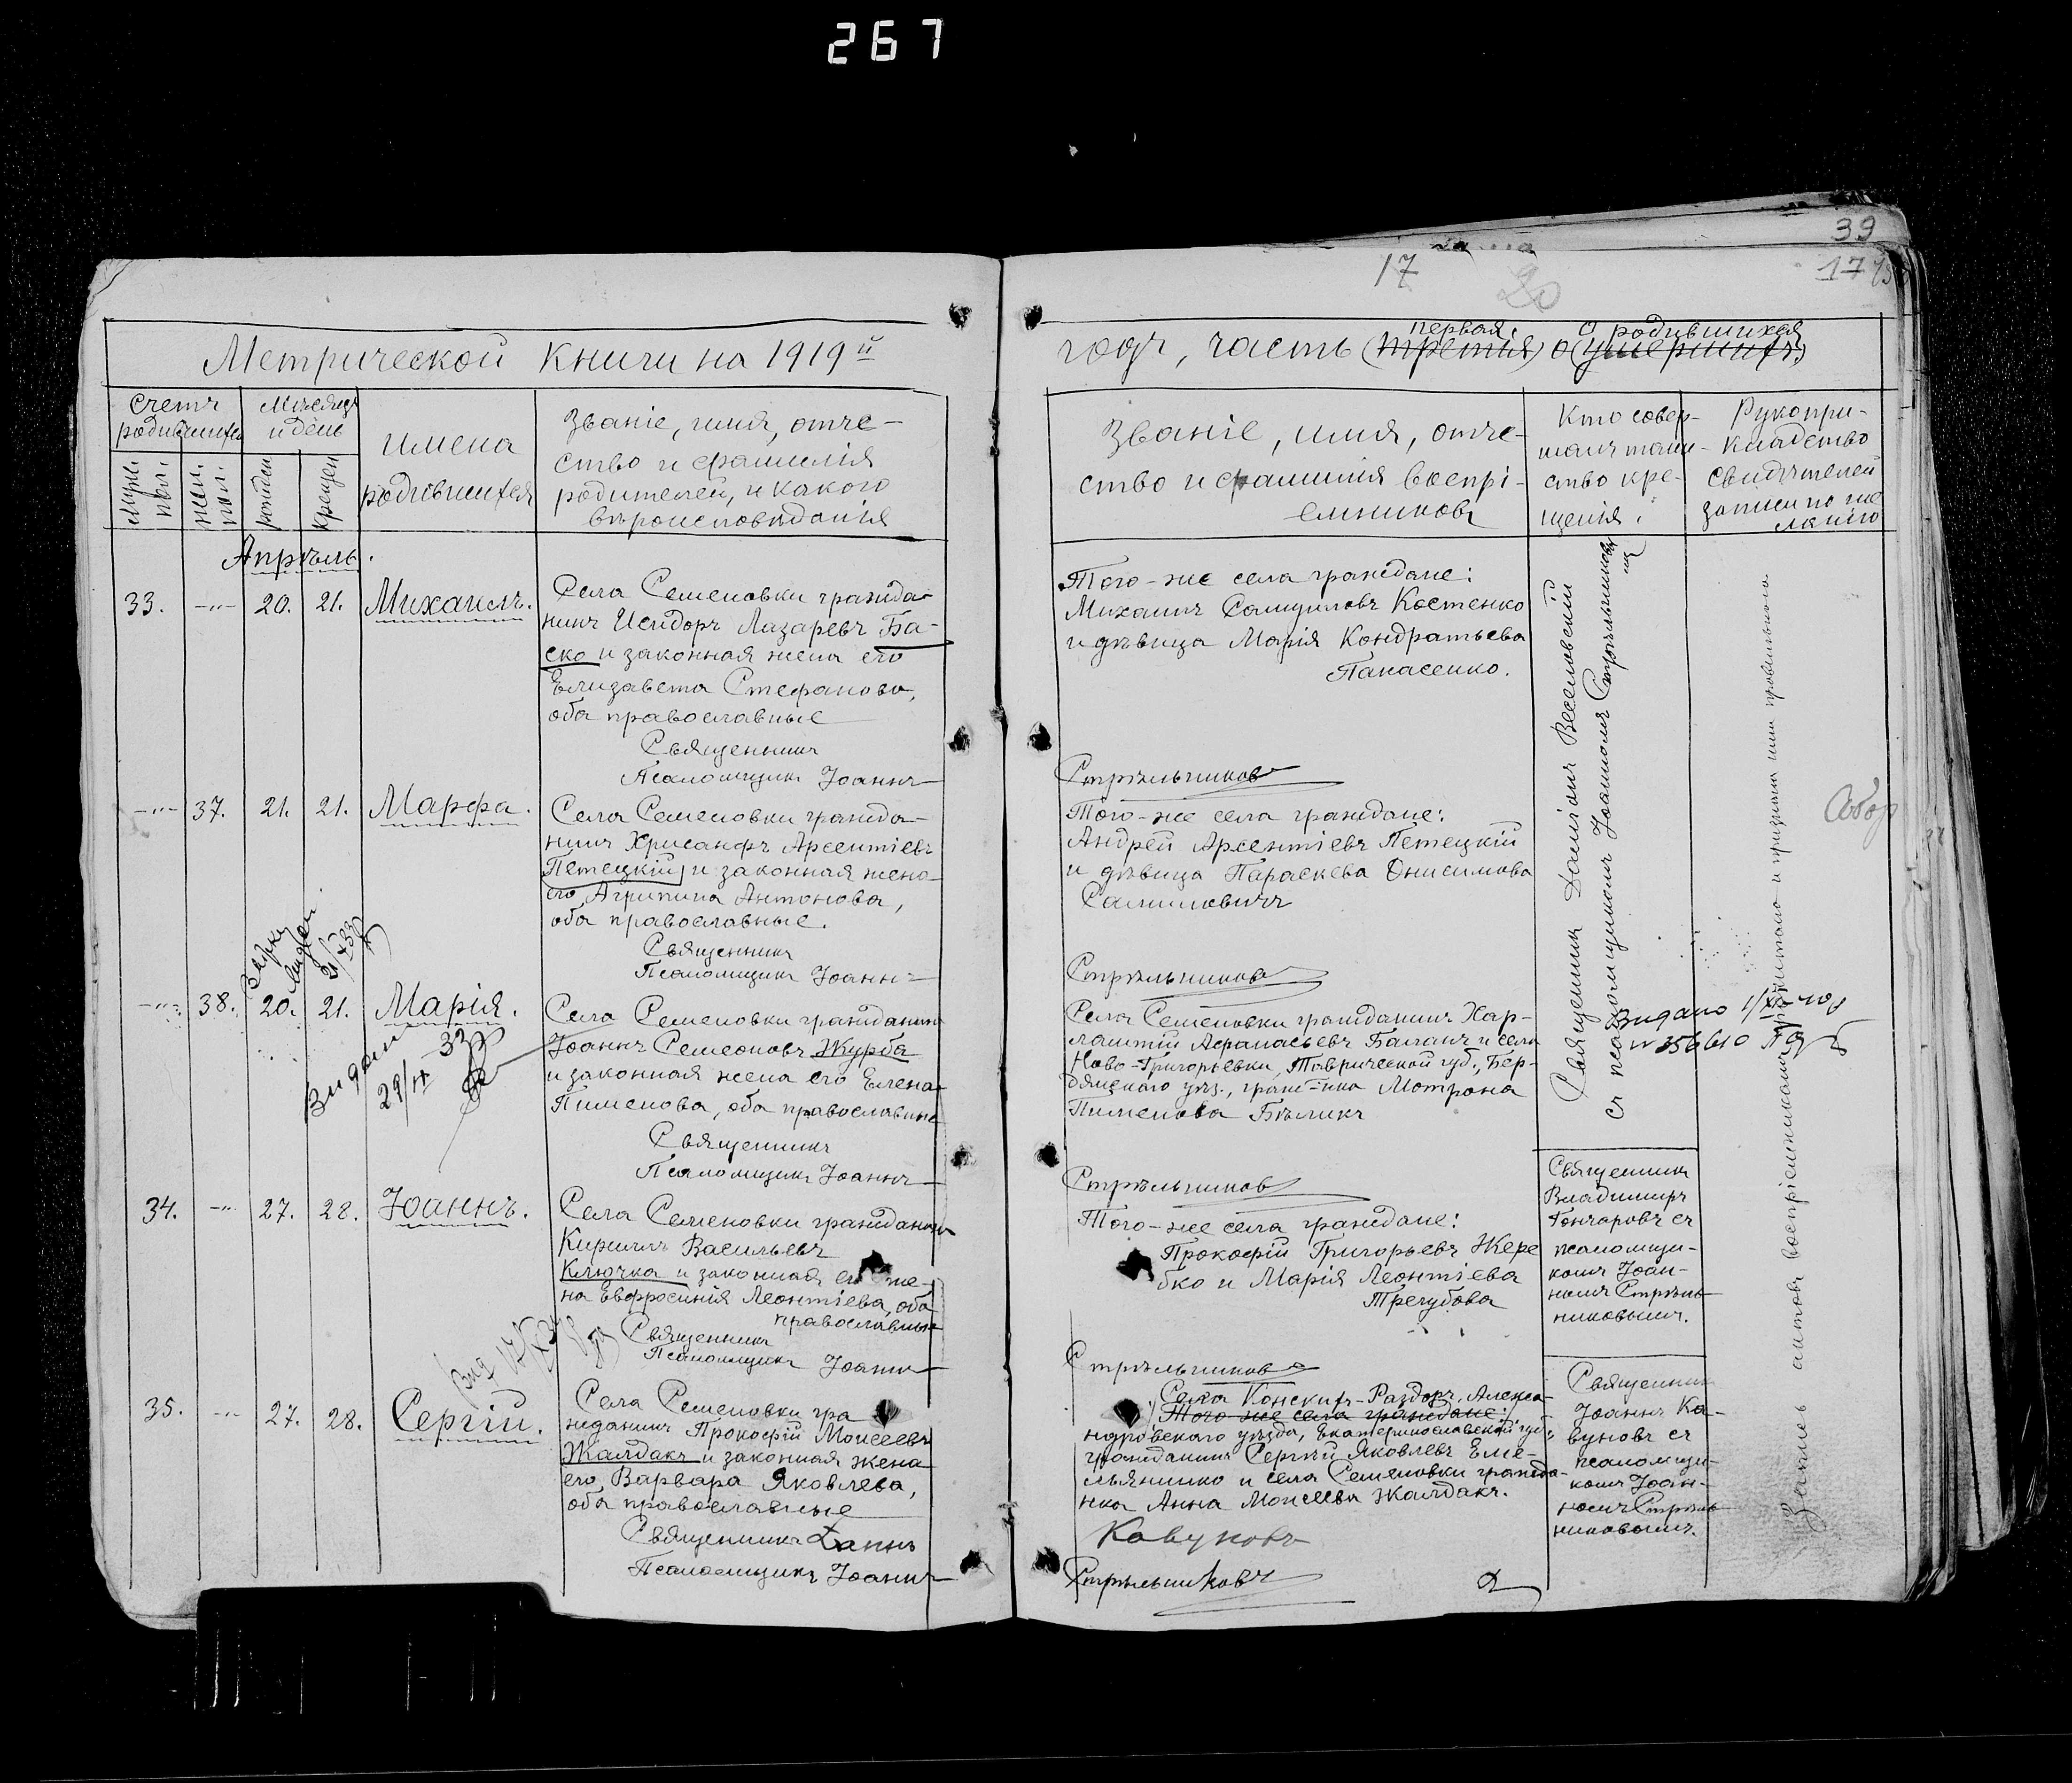 267
39
17
20
Метрической книги на 1919й
годъ, часть (третья) о (умершихъ)
первая, о родившихся
Счетъ родившихся
Муж. пол.
жен. пол.
Мѣсяцъ и день
рожден
крещен
имена
родившихся
Званіе, имя, отче-
ство и фамилія
родителей, и какого
вѣроисповѣданія
Званіе, имя, отче-
ство и фамилія воспрі-
емниковъ
Кто совер-
шалъ таин-
ство кре-
щенія.
Рукопри-
кладство
свидѣтелей
записи по же
ланію
Апрѣль.
33.
-"-
20.
21.
Михаилъ.
Села Семеновки гражда-
нинъ Исидоръ Лазаревъ Ба-
ско и законная жена его
Елизавета Стефанова,
оба православные
Священникъ
Псаломщикъ Іоаннъ
Того-же села граждане:
Михаилъ Самуиловъ Костенко
и дѣвица Марія Кондратьева
Панасенко.
Стрѣльниковъ
-"-
37.
21.
21.
Марфа.
Села Семеновки гражда-
нинъ Хрисанфъ Арсентіевъ
Петецкій и законная жена
его Агрипина Антонова,
оба православные.
Священникъ
Псаломщикъ Іоаннъ
Того-же села граждане:
Андрей Арсентіевъ Петецкій
и дѣвица Параскева Онисимова
Самиловичъ
Стрѣльниковъ
-"-
38.
20.
21.
Марія.
Видан
29/II 33
Села Семеновки гражданинъ
Іоаннъ Семеоновъ Журба
и законная жена его Елена
Пименова, оба православные
Священникъ
Псаломщикъ Іоаннъ
Села Семеновки гражданинъ Хар-
лампій Афанасьевъ Баланъ и села
Ново-Григорьевки, Таврической губ., Бер-
дянскаго уѣз., граж-нка Мотрона
Пименова Бѣликъ
Стрѣльниковъ
Священникъ Даніилъ Веселовскій
съ псаломщикомъ Іоанномъ Стрѣльниковымъ
Видано
№ 356610
Собор
34.
-"-
27.
28.
Іоаннъ.
Села Семеновки гражданинъ
Кириллъ Васильевъ
Ключка и законная его же-
на Евфросинія Леонтіева, оба
православные
Священникъ
Псаломщикъ Іоаннъ
Того-же села граждане:
Прокофій Григорьевъ Жере
бко и Марія Леонтіева
Трегубова
Стрѣльниковъ
Священникъ
Владимиръ
Гончаровъ съ
псаломщи-
комъ Іоан-
номъ Стрѣль
никовымъ.
35.
-"-
27.
28.
Сергій.
Села Семеновки гра
жданинъ Прокофій Моисеевъ
Жалдакъ и законная жена
его Варвара Яковлева,
оба православные
Священникъ Іоаннъ
Псаломщикъ Іоаннъ
Села Конскихъ-Раздоръ, Алекса-
Того-же села граждане:
ндровскаго уѣзда, Екатеринославской губ.,
гражданинъ Сергѣй Яковлевъ Еме-
льяненко и села Семеновки гражда-
нка Анна Моисеева Жалдакъ.
Кавуновъ
Стрѣльниковъ
Священникъ
Іоаннъ Ка-
вуновъ съ
псаломщи-
комъ Іоан-
номъ Стрѣль
никовымъ.
Запись актовъ воспріемниками прочитана и признана ими правильной